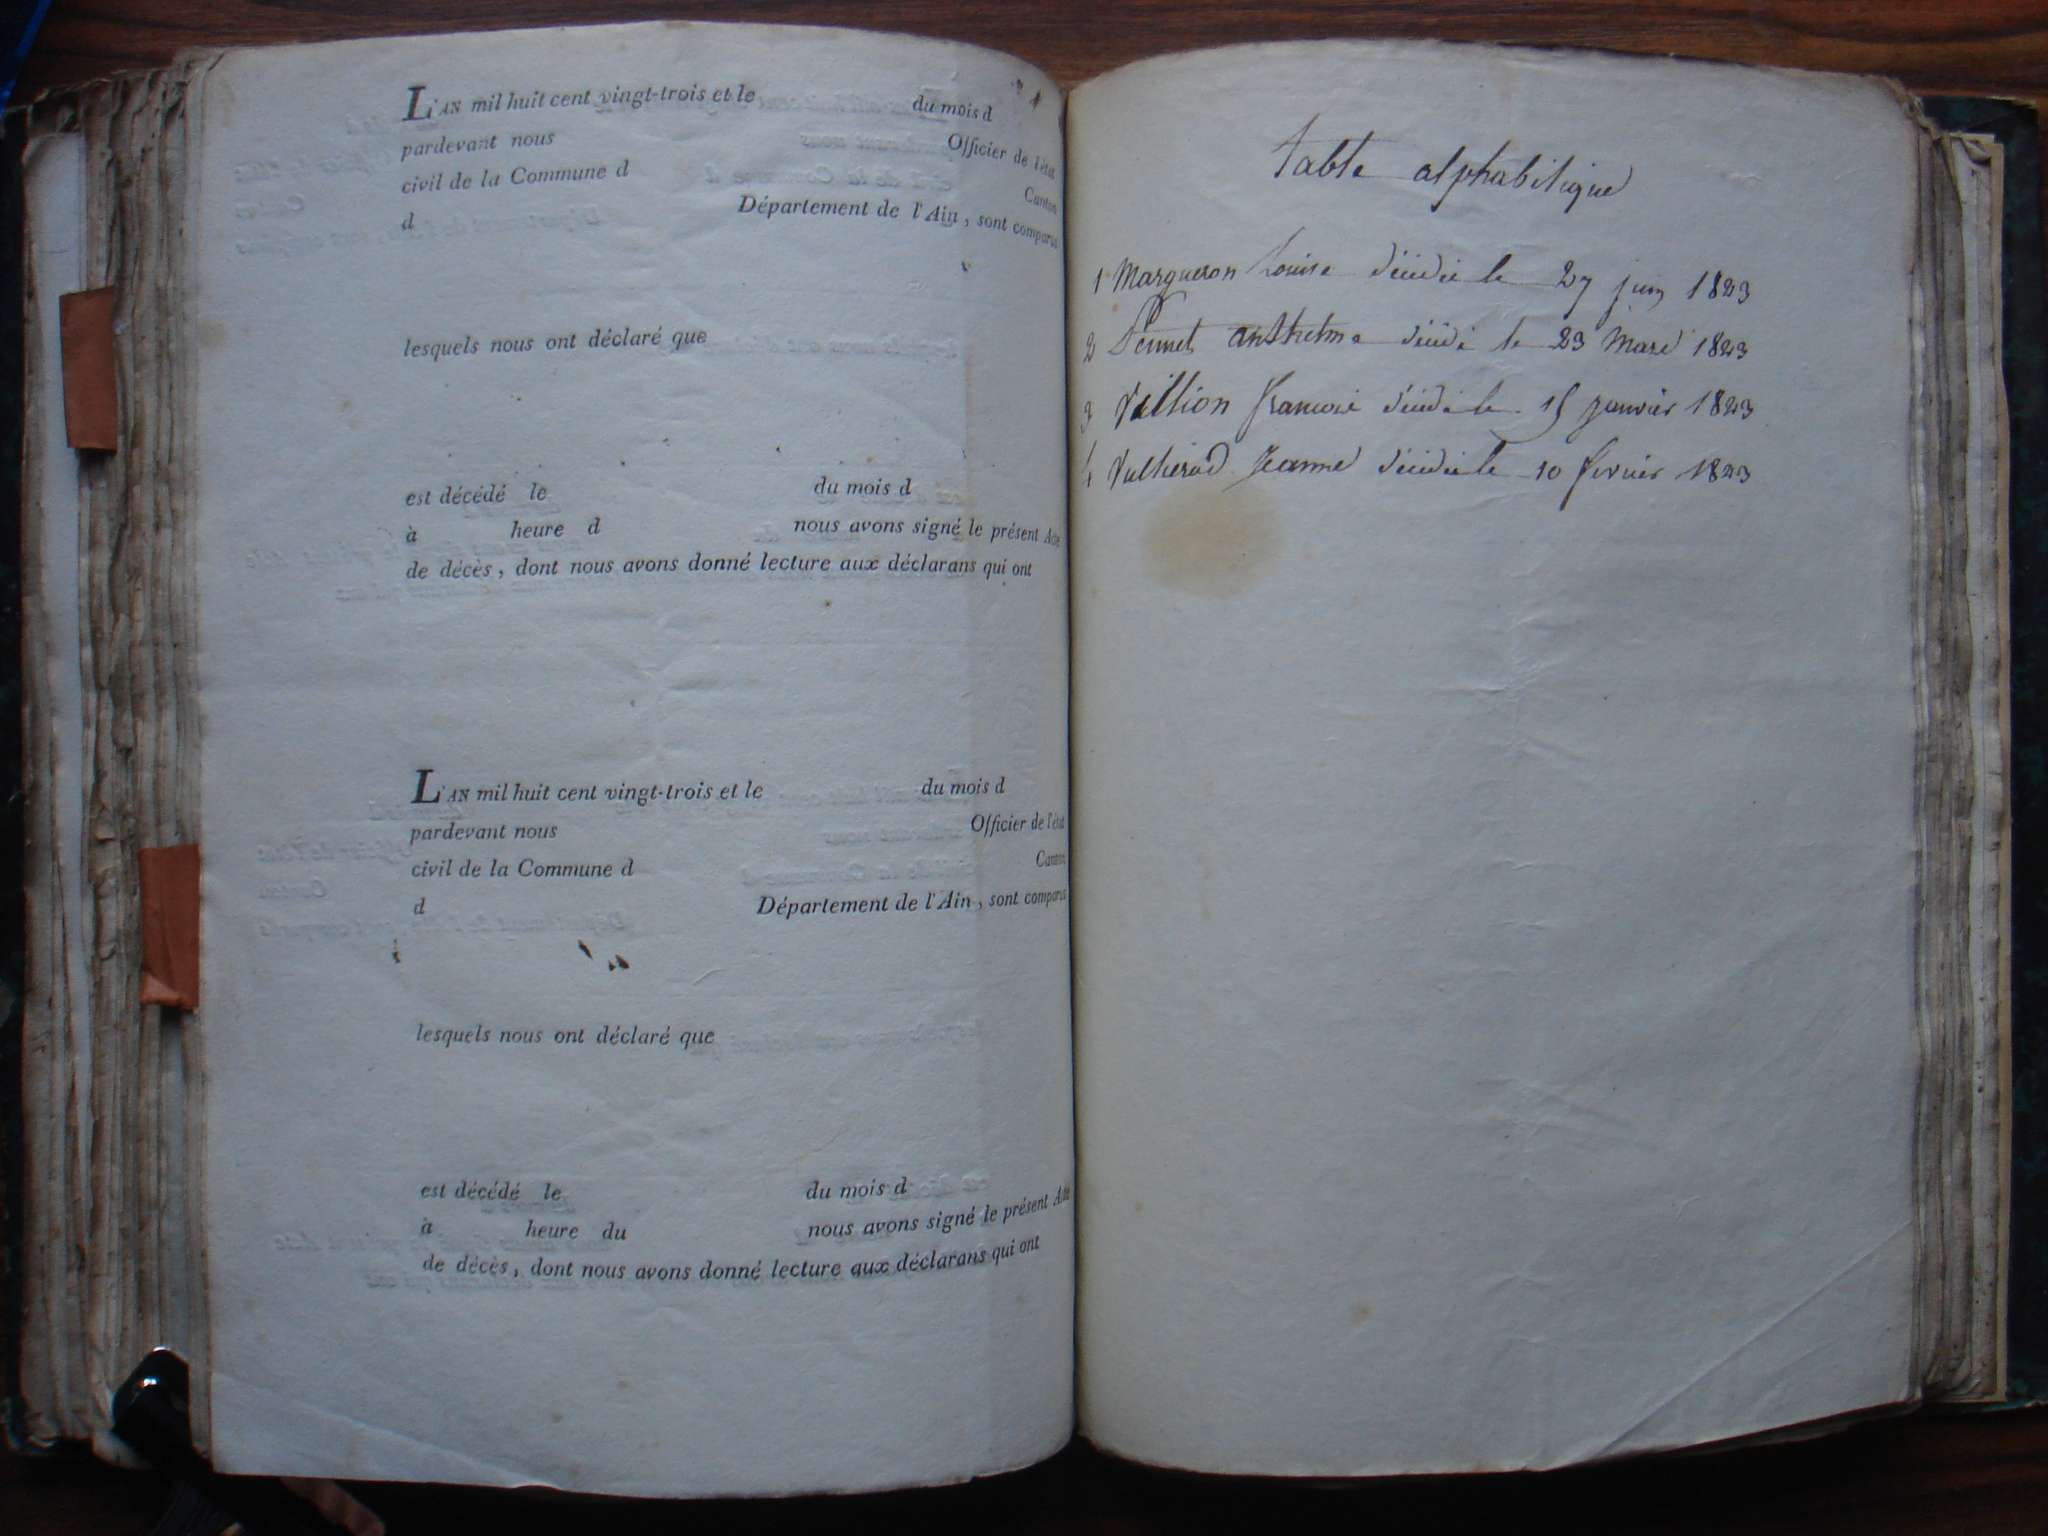 L'AN mil huit cent vingt-trois et le du mois d
pardevant nous Officier de l'état
civil de la Commune d Canton
d Département de l'Ain, sont comparus
lesquels nous ont déclaré que
est décédé le du mois d
à heure d nous avons signé le présent Acte
de décès, dont nous avons donné lecture aux déclarans qui ont
L'AN mil huit cent vingt-trois et le du mois d
pardevant nous Officier de l'état
civil de la Commune d Canton
d Département de l'Ain, sont comparus
lesquels nous ont déclaré que
est décédé le du mois d
à heure du nous avons signé le présent Acte
de décès, dont nous avons donné lecture aux déclarans qui ont
table alphabitique
1 Margueron Louise décédée le 27 juin 1823
2 anthelme décédé le 23 Mars 1823
3 françois décédé le 15 janvier 1823
4 Jeanne décédée le 10 fevrier 1823